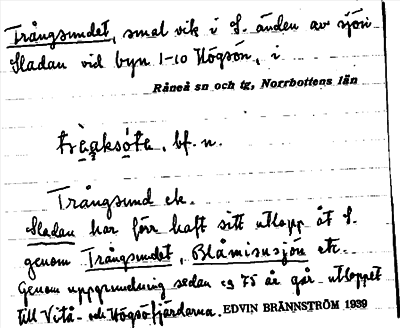 Trångsundet, smal vik i S. änden av sjön
Sladan vid byn 1-10 Högsön, i
Råneå sn och tg, Norrbottens län
bf. n.
Trångsund etc.
Sladan har förr haft sitt utlopp åt S.
genom Trångsundet, Blåmisusjön etc.
Genom uppgrundning sedan ca 75 år går utloppet
till Vitå- och Högsöfjärdarna. EDVIN BRÄNNSTRÖM 1939